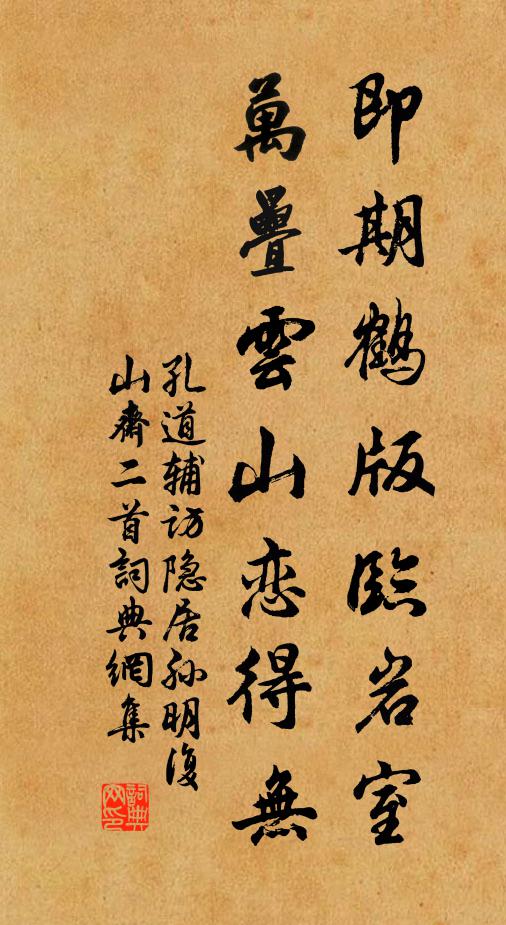 即期鹤版臨岩室
萬疊雲山恋得無
孔道辅访隐居孙明復
山齋二首詞典網集
詞典网印